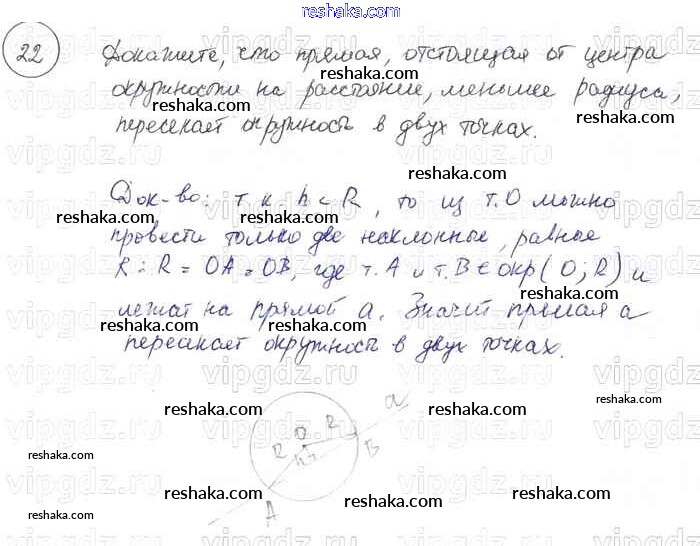 reshaka.com
22 Докажите, что прямая, отстоящая от центра
окружности на расстояние, меньшее радиуса,
пересекает окружность в двух точках.
Док-во: т.к. h < R, то из т.О можно
провести только две наклонные, равные
R: R = OA = OB, где т.А и т.В ∈ окр(O; R) и
лежат на прямой а. Значит прямая а
пересекает окружность в двух точках.
reshaka.com
reshaka.com
reshaka.com
reshaka.com
reshaka.com
reshaka.com
reshaka.com
reshaka.com
reshaka.com
reshaka.com
reshaka.com
a
O R
R
h
B
A
reshaka.com
reshaka.com
reshaka.com
reshaka.com
reshaka.com
reshaka.com
reshaka.com
vipgdz.ru